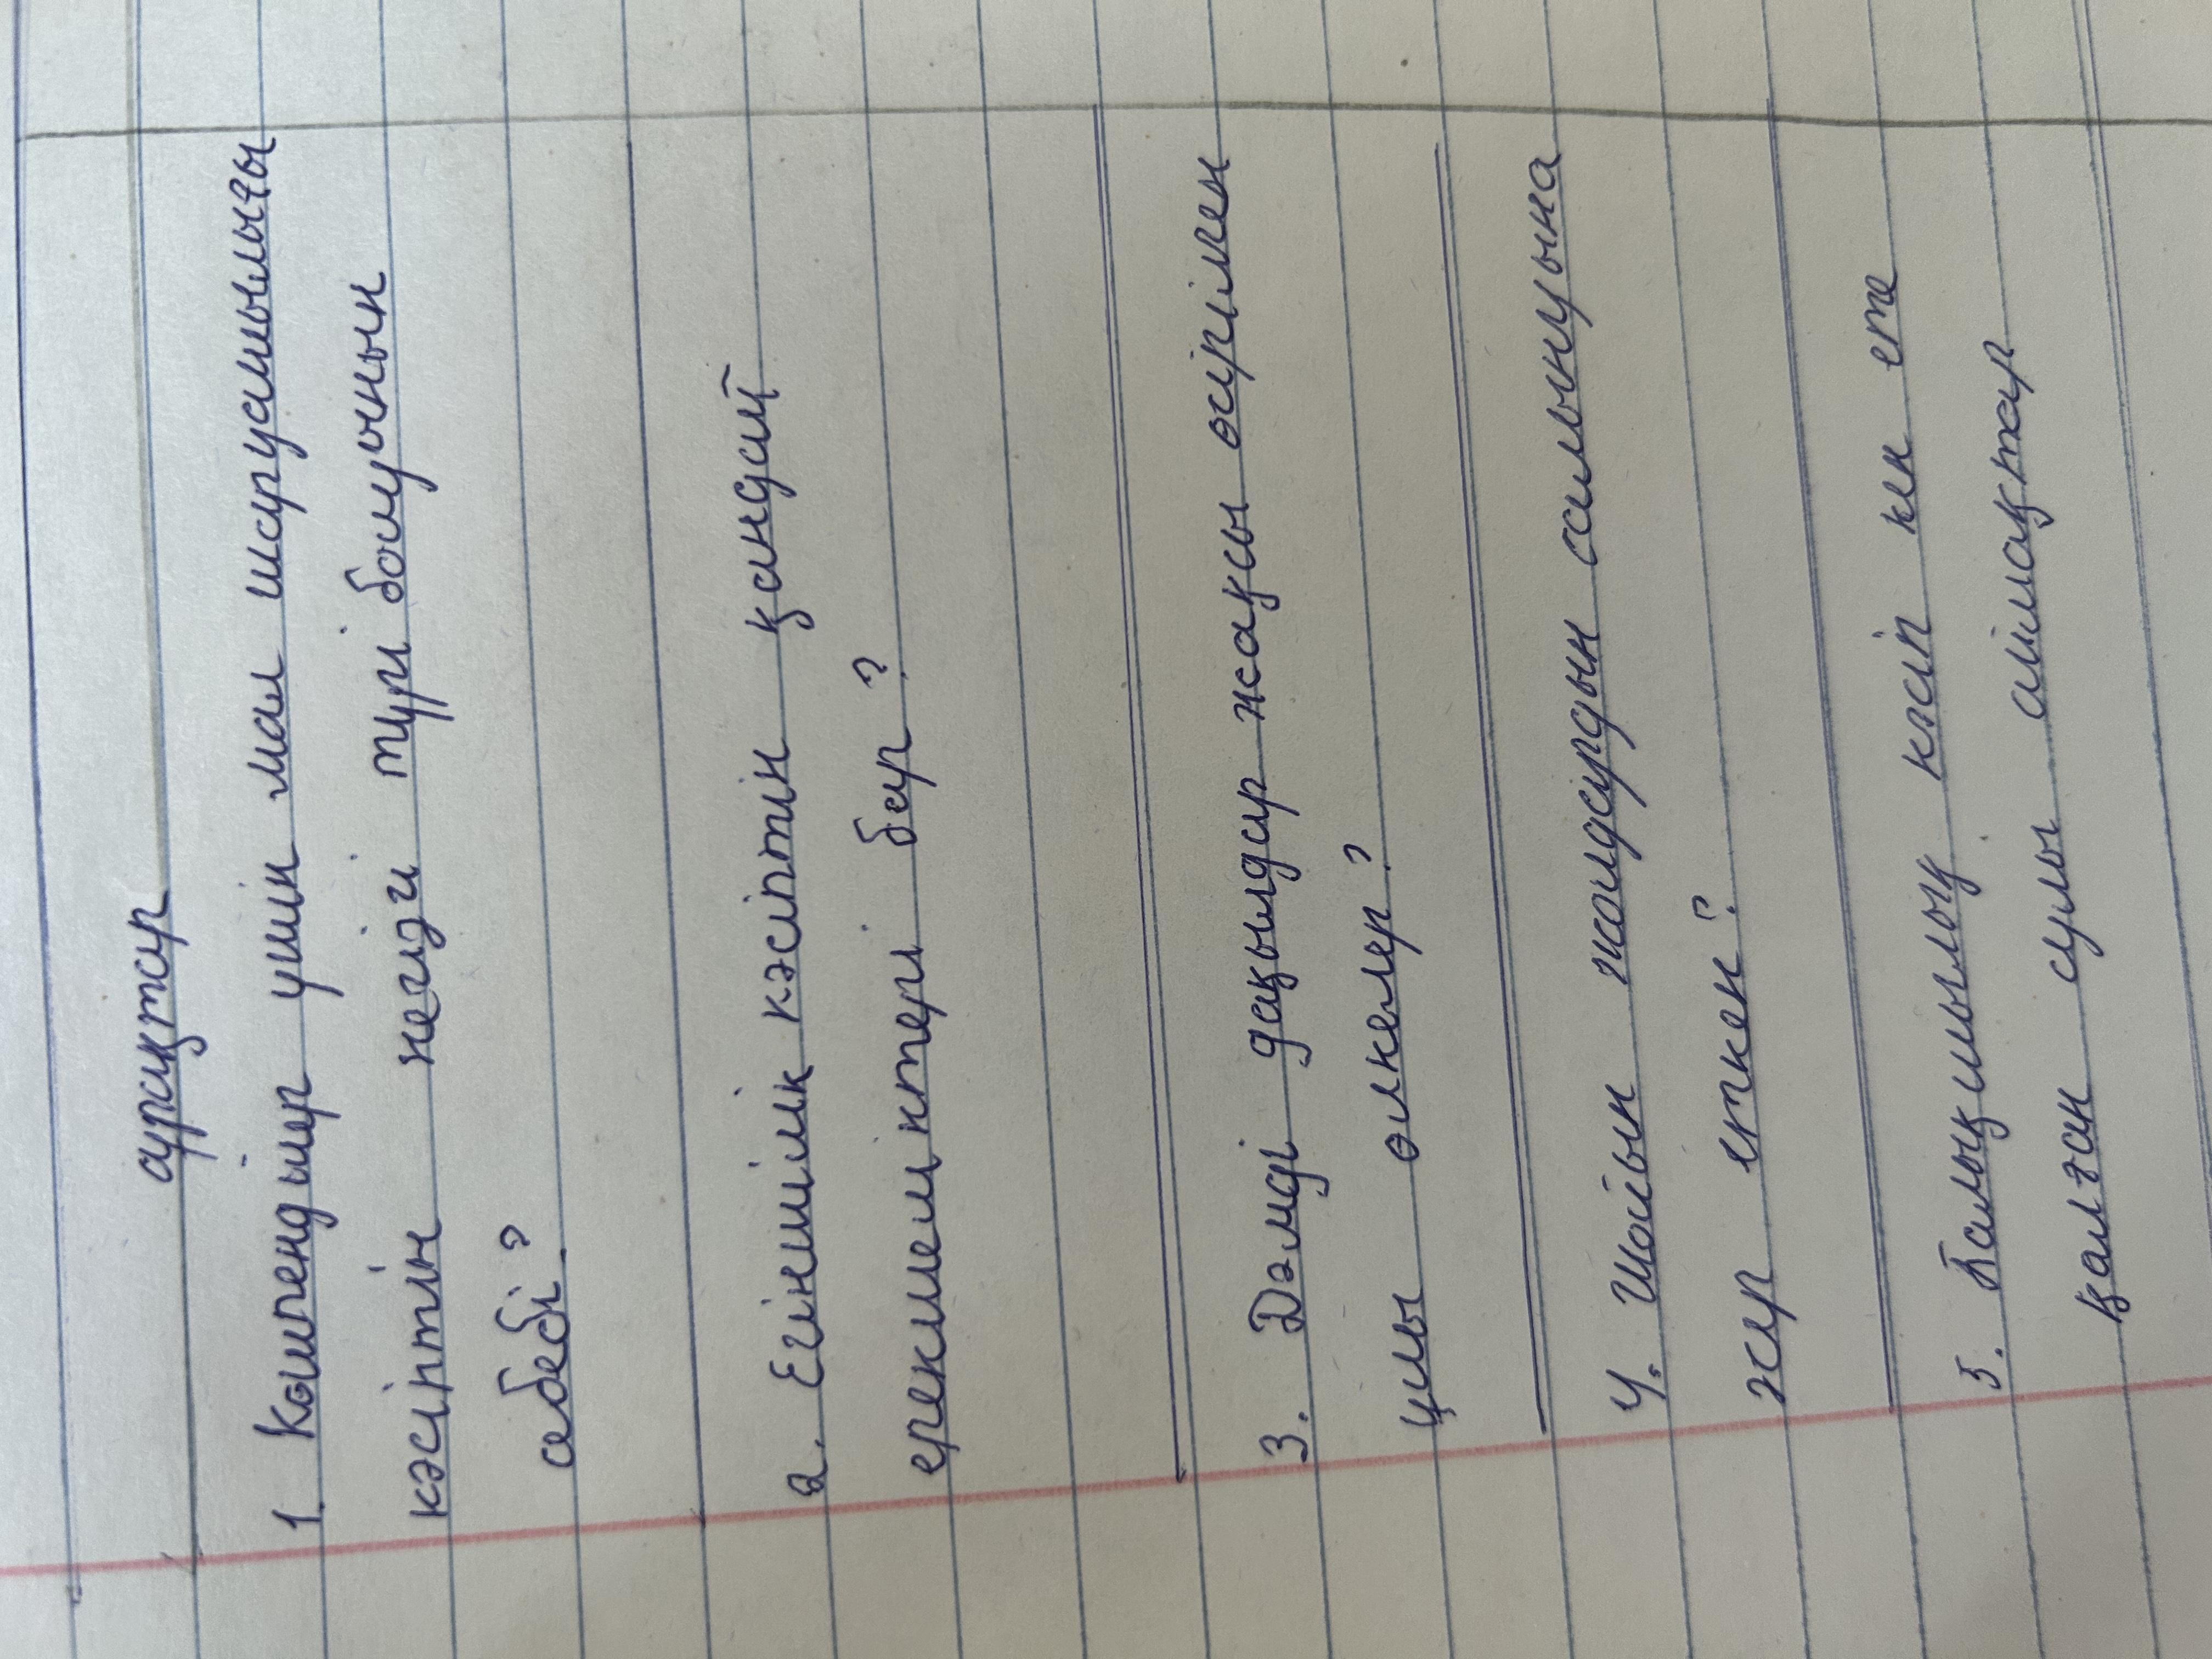 аурақтар
1. Көшпендіілер үшін мал шаруашылығы
кәсіптін негізгі түрі болуының
себебі?
2. Егіншілік кәсіптін қандай
ерекшеліктері бар?
3. Дәмді дақылдар жақсы өсірілген
қилы өлкелер?
4. Шойын жолдардын салынуына
әсер еткен?
5. Балықшылық кәсіп кен ете
қалған сулы аймақтар